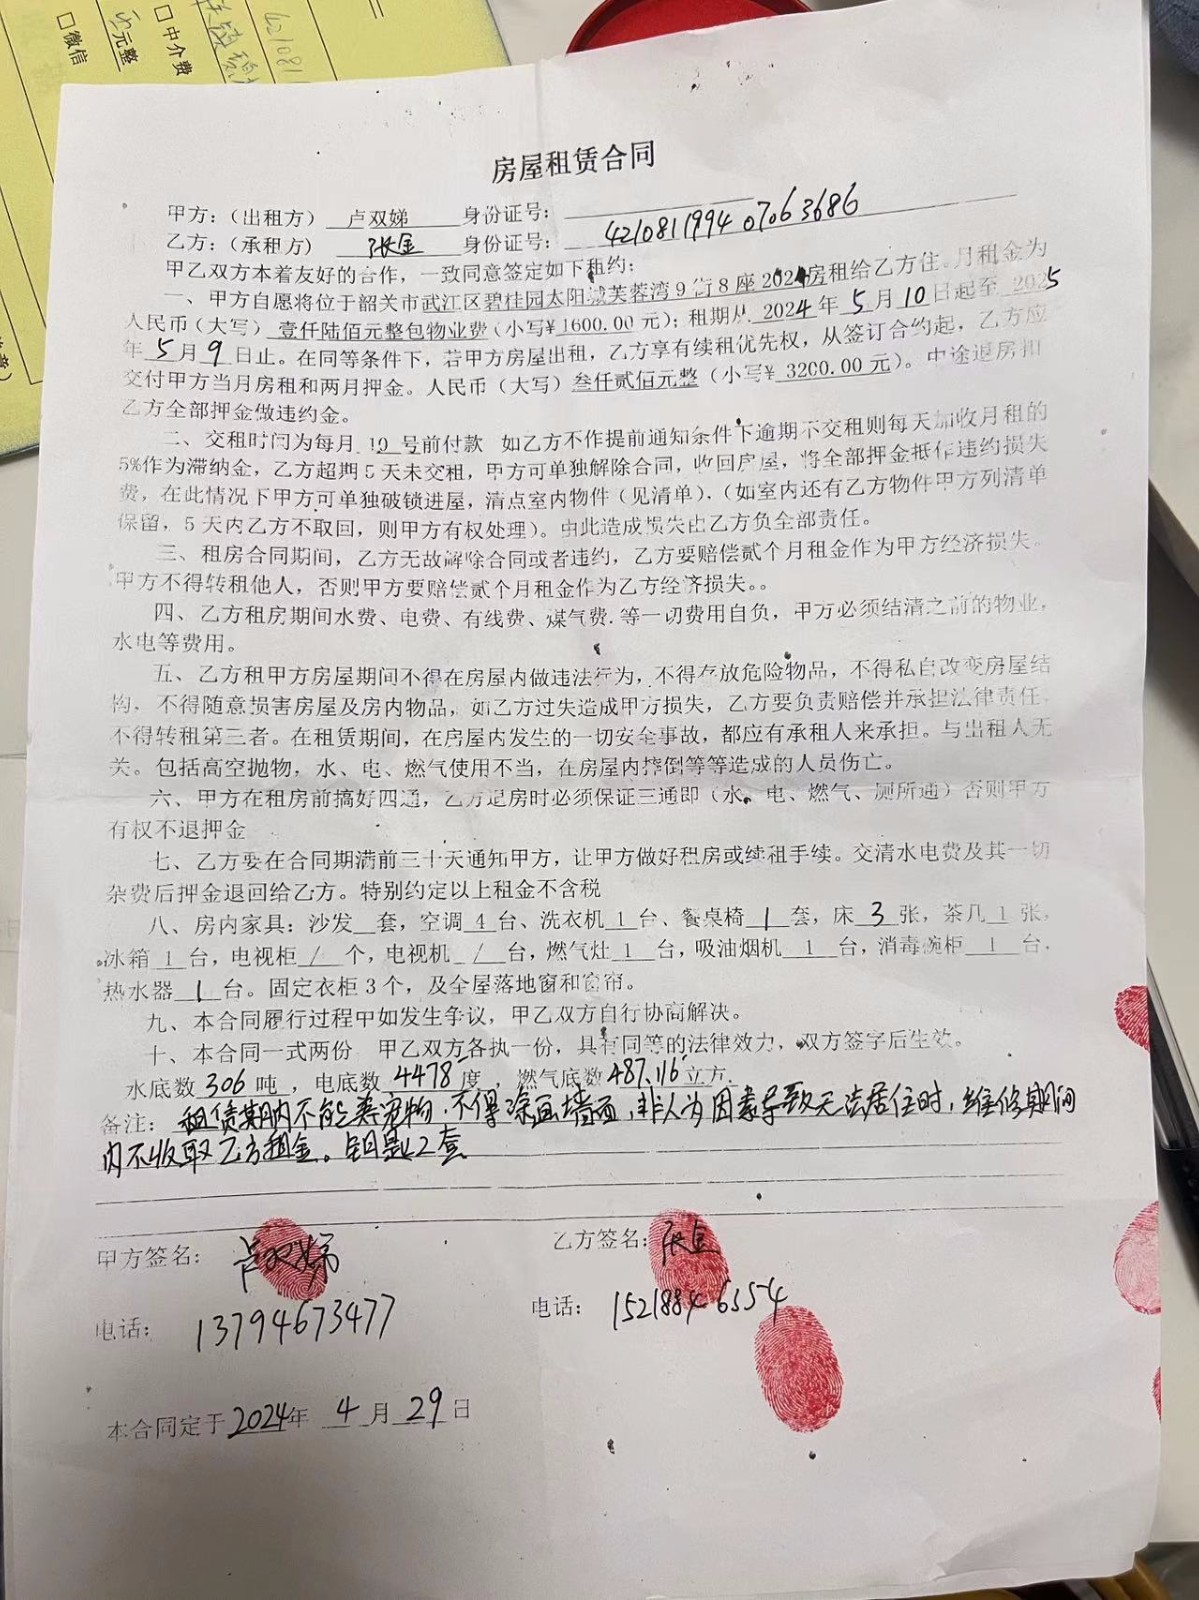 421081
元整
□中介费
□微信
房屋租赁合同
甲方：（出租方） 卢双娣 身份证号：
乙方：（承租方） 张金 身份证号： 421081199407063686
甲乙双方本着友好的合作，一致同意签定如下租约：
一、甲方自愿将位于韶关市武江区碧桂园太阳城芙蓉湾9街8座202房租给乙方住。月租金为
人民币（大写）壹仟陆佰元整包物业费（小写¥1600.00元）；租期从 2024 年 5 月 10 日起至 2025
年 5 月 9 日止。在同等条件下，若甲方房屋出租，乙方享有续租优先权，从签订合约起，乙方应
交付甲方当月房租和两月押金。人民币（大写）叁仟贰佰元整（小写¥ 3200.00 元）。中途退房扣
乙方全部押金做违约金。
二、交租时间为每月 10 号前付款 如乙方不作提前通知条件下逾期不交租则每天加收月租的
5%作为滞纳金，乙方超期5天未交租，甲方可单独解除合同，收回房屋，将全部押金抵作违约损失
费，在此情况下甲方可单独破锁进屋，清点室内物件（见清单）．（如室内还有乙方物件甲方列清单
保留，5天内乙方不取回，则甲方有权处理）。由此造成损失由乙方负全部责任。
三、租房合同期间，乙方无故解除合同或者违约，乙方要赔偿贰个月租金作为甲方经济损失。
甲方不得转租他人，否则甲方要赔偿贰个月租金作为乙方经济损失。。
四、乙方租房期间水费、电费、有线费、煤气费．等一切费用自负，甲方必须结清之前的物业，
水电等费用。
五、乙方租甲方房屋期间不得在房屋内做违法行为，不得存放危险物品，不得私自改变房屋结
构，不得随意损害房屋及房内物品，如乙方过失造成甲方损失，乙方要负责赔偿并承担法律责任，
不得转租第三者。在租赁期间，在房屋内发生的一切安全事故，都应有承租人来承担。与出租人无
关。包括高空抛物，水、电、燃气使用不当，在房屋内摔倒等等造成的人员伤亡。
六、甲方在租房前搞好四通，乙方退房时必须保证三通即（水、电、燃气、厕所通）否则甲方
有权不退押金
七、乙方要在合同期满前三十天通知甲方，让甲方做好租房或续租手续。交清水电费及其一切
杂费后押金退回给乙方。特别约定以上租金不含税
八、房内家具：沙发 套，空调 4 台、洗衣机 1 台、餐桌椅 1 套，床 3 张，茶几 1 张，
冰箱 1 台，电视柜 / 个，电视机 / 台，燃气灶 1 台，吸油烟机 1 台，消毒碗柜 1 台，
热水器 1 台。固定衣柜3个，及全屋落地窗和窗帘。
九、本合同履行过程中如发生争议，甲乙双方自行协商解决。
十、本合同一式两份 甲乙双方各执一份，具有同等的法律效力，双方签字后生效。
水底数 306 吨，电底数 4478 度，燃气底数 487.116 立方．
备注：租赁期内不能养宠物．不得涂画墙面，非人为因素导致无法居住时，维修期间
内不收取乙方租金。钥匙2套
甲方签名：卢双娣 乙方签名：张金
电话：13794673477 电话：15218846554
本合同定于 2024年 4 月 29 日